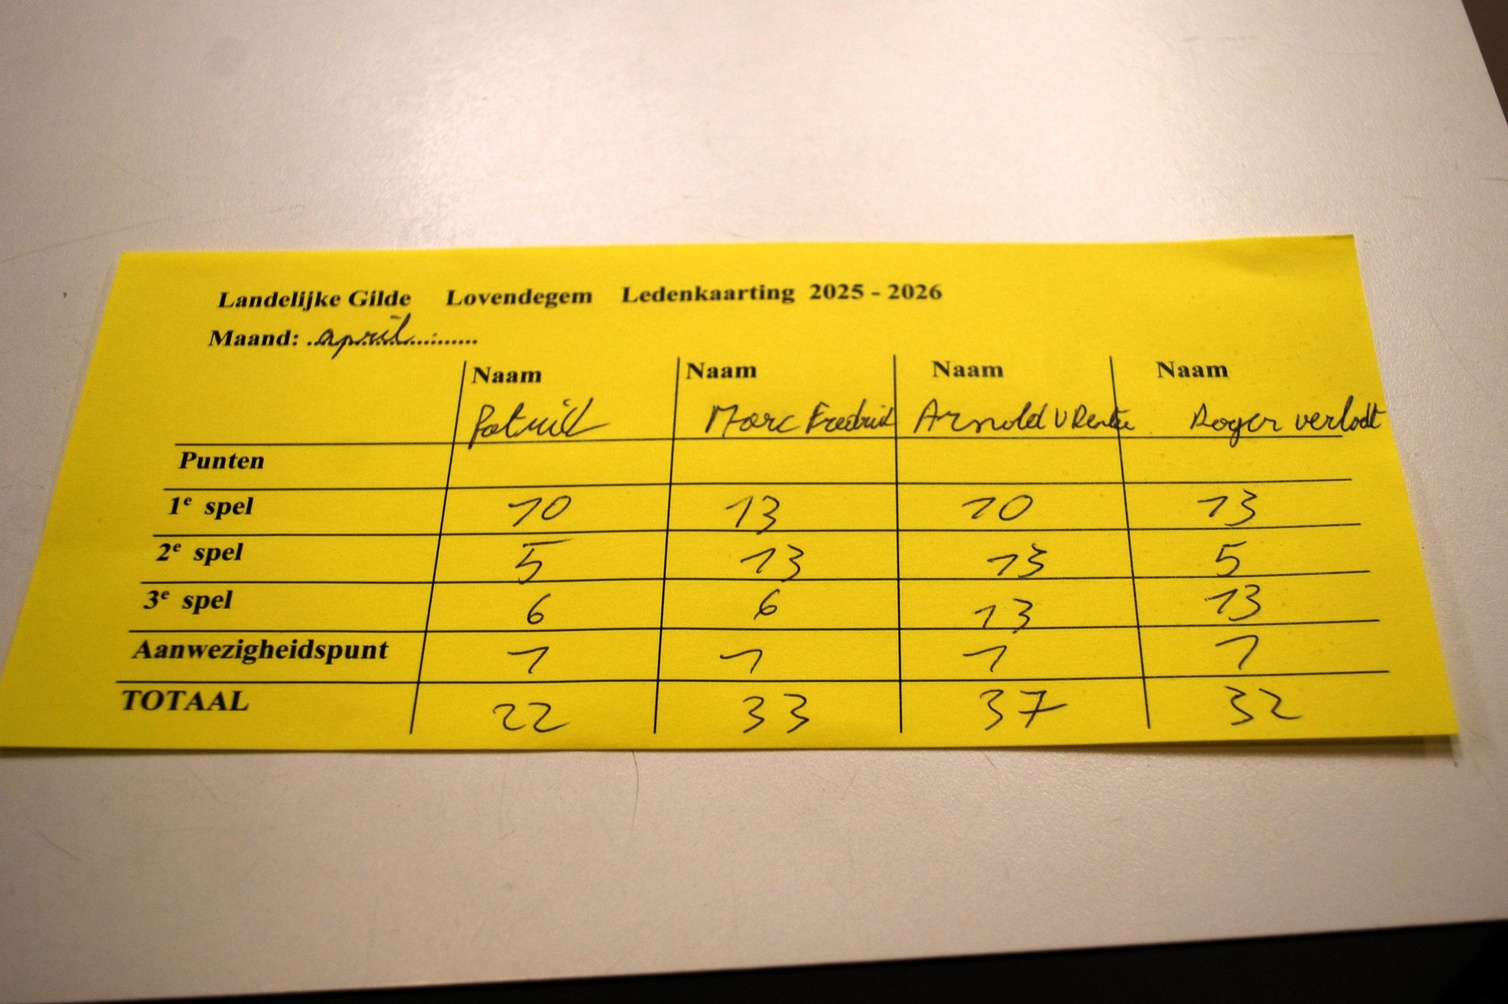 Landelijke Gilde Lovendegem Ledenkaarting 2025 - 2026
Maand: .april...........
Naam Naam Naam Naam
Patrick Marc Fredrick Arnold V Rentie Roger verlodt
Punten
1e spel 10 13 10 13
2e spel 5 13 13 5
3e spel 6 6 13 13
Aanwezigheidspunt 1 1 1 1
TOTAAL 22 33 37 32